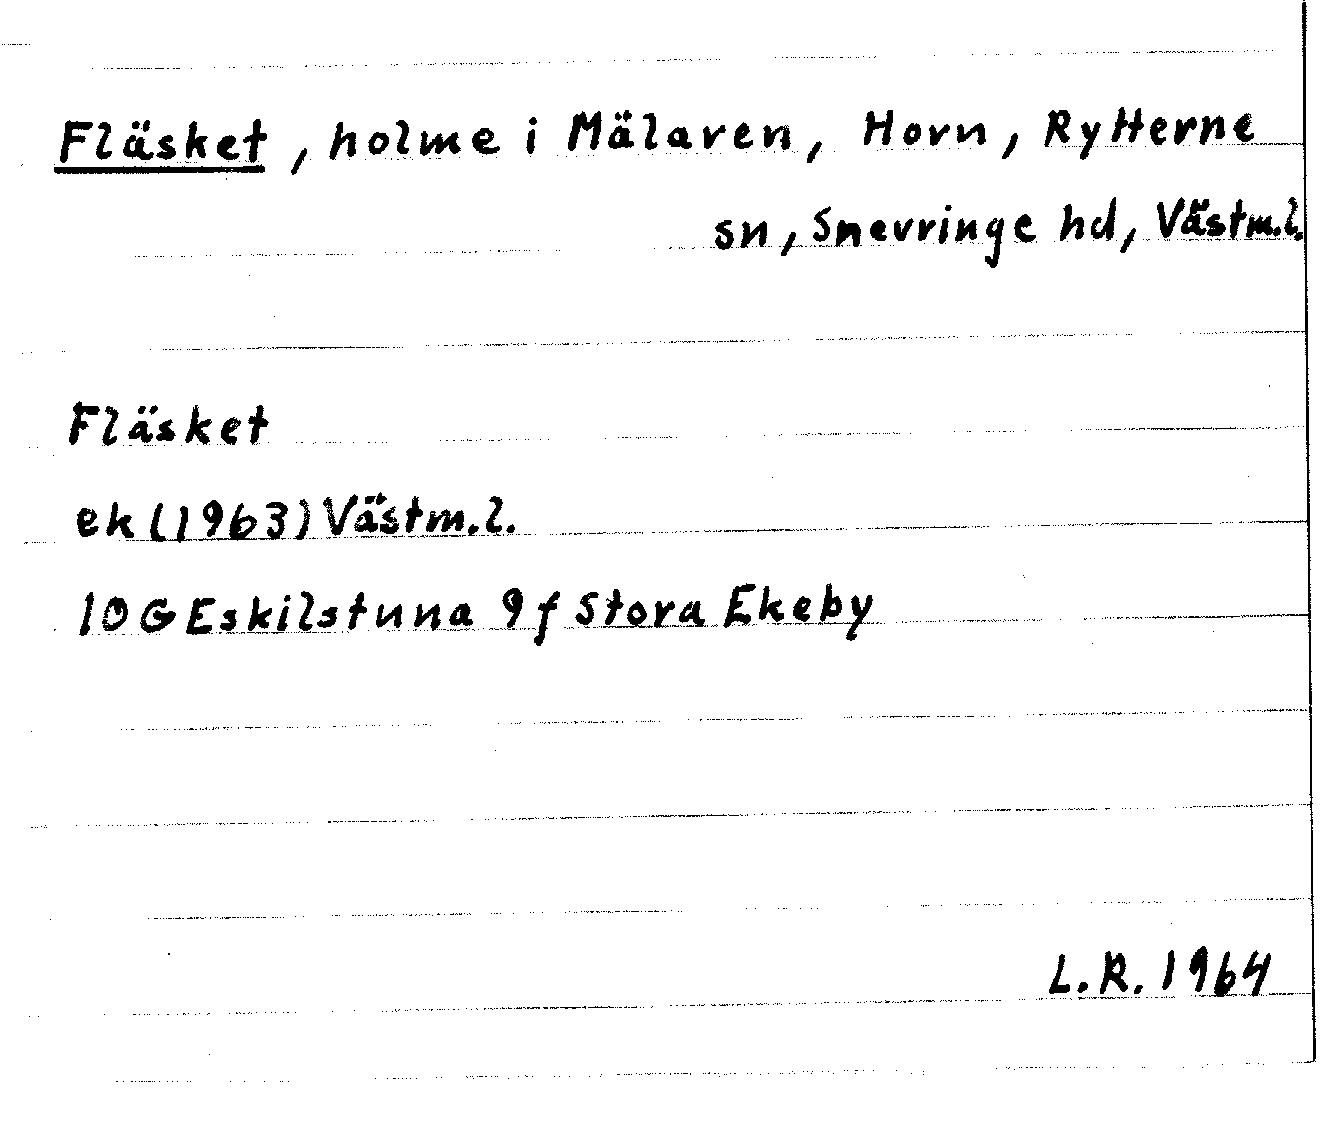 Fläsket, holme i Mälaren, Horn, Rytterne
sn, Snevringe hd, Västm.l.
Fläsket
ek (1963) Västm.l.
10 G Eskilstuna 9f Stora Ekeby
L.R. 1964